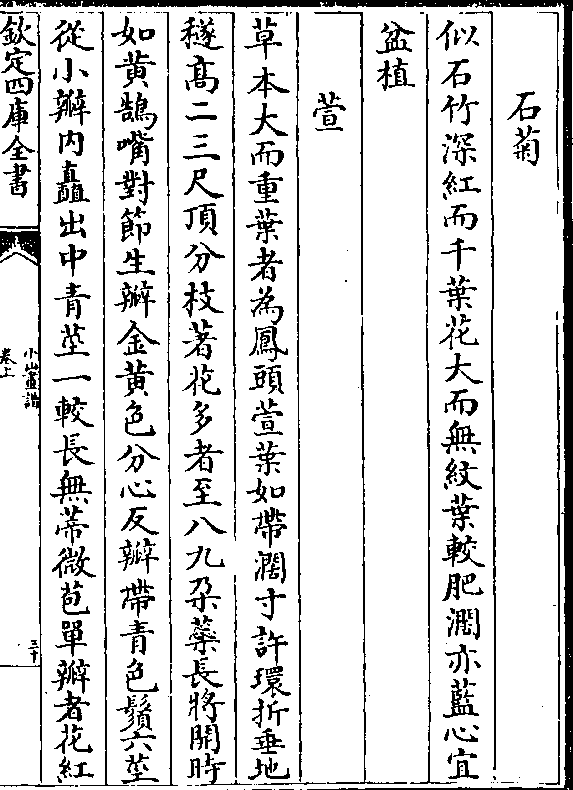 石菊
似石竹深紅而千葉花大而無紋葉較肥濶亦藍心宜
盆植
萱
草本大而重葉者為鳳頭萱葉如帶濶寸許環折垂地
䆃高二三尺頂分枝著花多者至八九朶蘂長將開時
如黄鵠嘴對節生瓣金黄色分心反瓣帶青色鬚六莖
從小瓣内矗出中青莖一較長無蒂微苞單瓣者花紅
欽定四庫全書
小山畫譜
卷上
三十